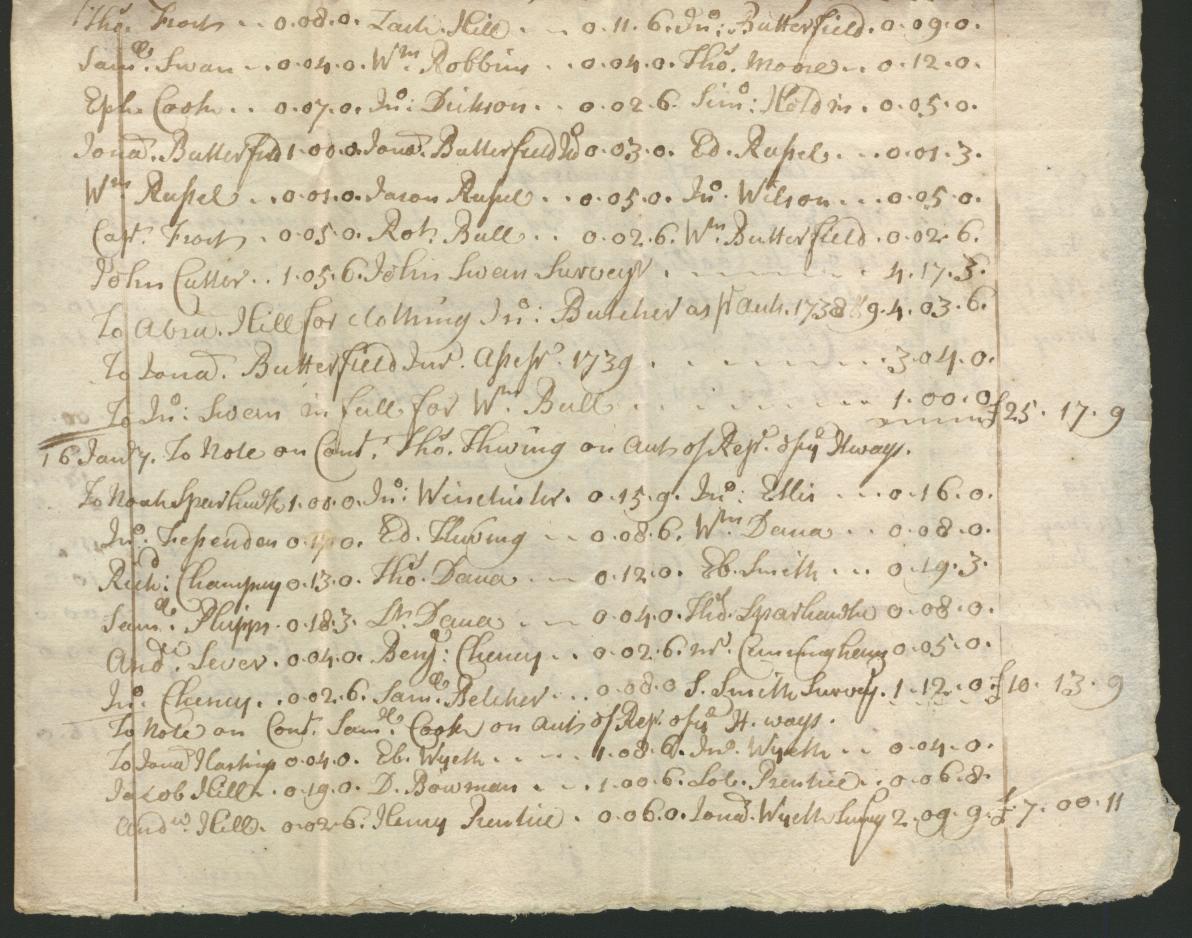 Tho.s Frost .. 0.08.0. Zach. Hill .. 0.11.6. Jn.o: Butterfield. 0.09.0.
Sam.ll Swan .. 0.04.0. W.m Robbins .. 0.04.0. Tho.s Moore .. 0.12.0.
Eph. Cook .. 0.07.0. Jn.o: Dickson .. 0.02.6. Sim.o: Holdin. 0.05.0.
Jona.n Butterfield 1.00.0. Jona.n Butterfield 0.03.0. Ed. Russel ... 0.01.3.
W.m Russel .. 0.01.0. Jason Russel .. 0.05.0. Jn.o Wilson ... 0.05.0.
Cap.t Frost .. 0.05.0. Rob.t Bull .. 0.02.6. W.m Butterfield. 0.02.6.
John Cutter .. 1.05.6. John Swan Survey.r . . . . . 4.17.3.
To Abra. Hill for clothing Jn.o: Butcher as p.r Auth. 1738 & 9. 4.03.6.
To Jona.n Butterfield Jun.r Assess.r 1739 . . . . . 3.04.0.
To Jn.o: Swan in full for W.m Bull . . . . . 1.00.0 £25.17.9
16 Jan.ry. To Note on Const. Tho.s Thwing on Auts of Rep.r of y.e Hways.
To Noah Sparhawk 1.00.0. Jn.o: Winchister. 0.15.9. Jn.o: Ellis ... 0.16.0.
Jn.o Fessenden Ed. Thwing ... 0.08.6. W.m Dana ... 0.08.0.
Rich.d: Champney 0.13.0. Tho.s Dana ... 0.12.0. Eb. Smith ... 0.19.3.
Sam.ll Phipps. 0.18.3. L.t Dana ... 0.04.0. Tho.s Sparhawk 0.08.0.
And.w Sever. 0.04.0. Benj.n: Cheney .. 0.02.6. m.r Cunningham 0.05.0.
Jn.o Cheney .. 0.02.6. Sam.ll Belcher ... 0.08.0 S. Smith Survey.r 1.12.0. £10.13.9
To Note on Const. Sam.ll Cook on Auts of Rep.r of y.e H.ways.
To Jona.n Hasting 0.04.0. Eb. Wyeth ..... 1.08.6. Jn.o Wyeth .. 0.04.0.
Jacob Hill. 0.19.0. D. Bowman .. 1.00.6. Sol. Prentice .. 0.06.8.
And.w Hill. 0.02.6. Henry Prentice .. 0.06.0. Jona.n Wyeth Survy 2.09.9. £7.00.11